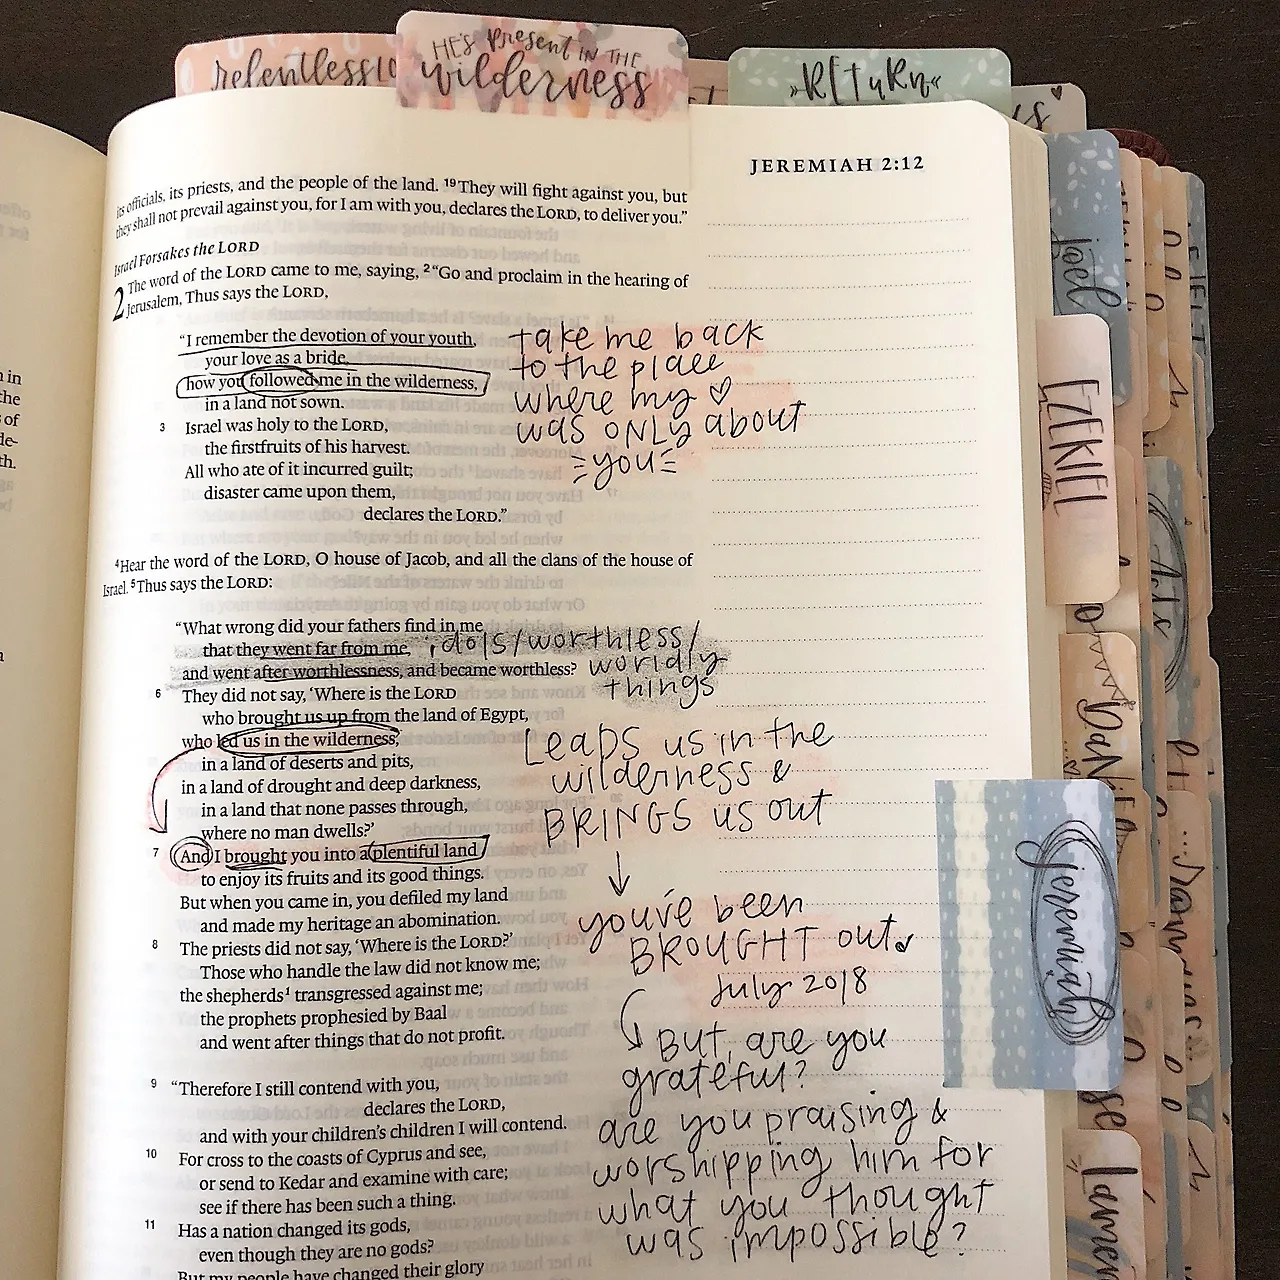 relentless
HE'S PRESENT IN THE
wilderness
»RETURN«
JEREMIAH 2:12
its officials, its priests, and the people of the land. 19 They will fight against you, but
they shall not prevail against you, for I am with you, declares the LORD, to deliver you."
Israel Forsakes the LORD
2 The word of the LORD came to me, saying, 2 "Go and proclaim in the hearing of
Jerusalem, Thus says the LORD,
"I remember the devotion of your youth,
your love as a bride,
how you followed me in the wilderness,
in a land not sown.
3 Israel was holy to the LORD,
the firstfruits of his harvest.
All who ate of it incurred guilt;
disaster came upon them,
declares the LORD."
take me back
to the place
where my ♡
was ONLY about
you
4 Hear the word of the LORD, O house of Jacob, and all the clans of the house of
Israel. 5 Thus says the LORD:
"What wrong did your fathers find in me
that they went far from me,
and went after worthlessness, and became worthless?
idols/worthless/
worldly
things
6 They did not say, 'Where is the LORD
who brought us up from the land of Egypt,
who led us in the wilderness,
in a land of deserts and pits,
in a land of drought and deep darkness,
in a land that none passes through,
where no man dwells?'
7 And I brought you into a plentiful land
to enjoy its fruits and its good things.
But when you came in, you defiled my land
and made my heritage an abomination.
8 The priests did not say, 'Where is the LORD?'
Those who handle the law did not know me;
the shepherds1 transgressed against me;
the prophets prophesied by Baal
and went after things that do not profit.
LEADS us in the
wilderness &
BRINGS us out
you've been
BROUGHT out
July 2018
But, are you
grateful?
are you praising &
worshipping him for
what you thought
was impossible?
9 "Therefore I still contend with you,
declares the LORD,
and with your children's children I will contend.
10 For cross to the coasts of Cyprus and see,
or send to Kedar and examine with care;
see if there has been such a thing.
11 Has a nation changed its gods,
even though they are no gods?
But my people have changed their glory
joel
EZEKIEL
Acts
Daniel
jeremiah
Lamen
in
the
of
de-
th.